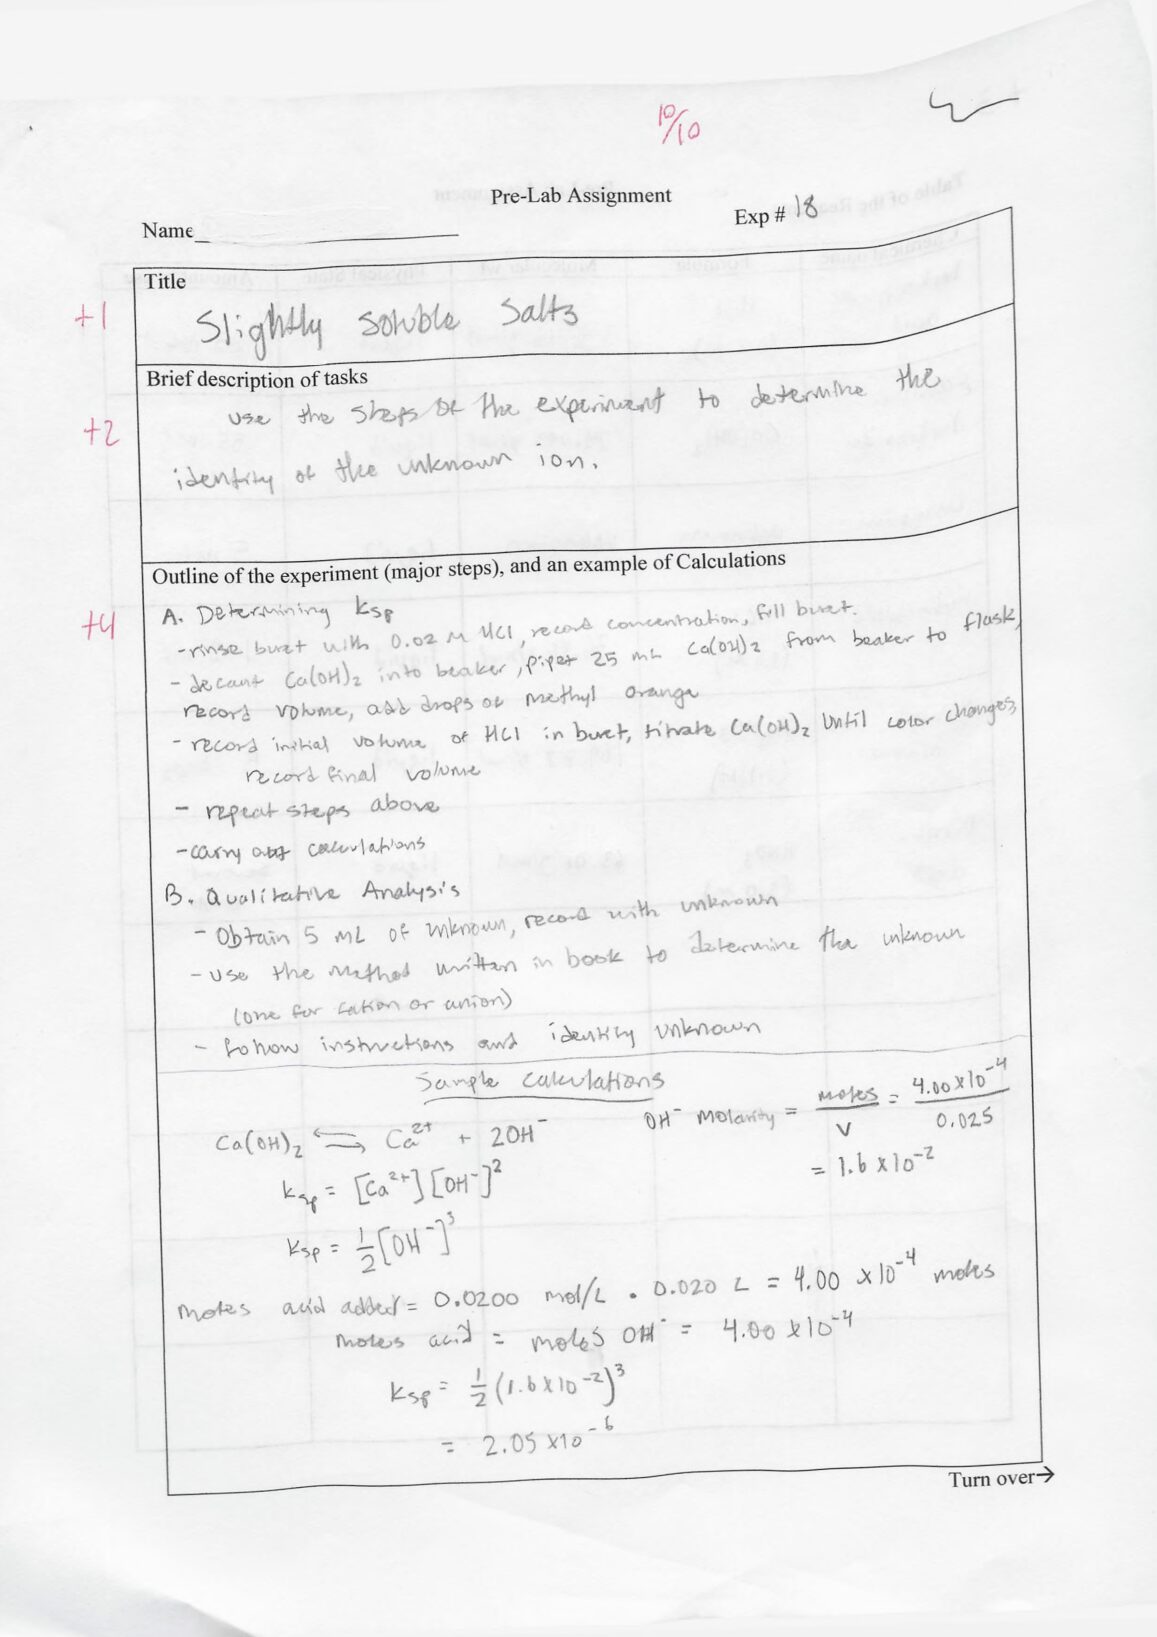 10/10
Pre-Lab Assignment
Name
Exp # 18
Title
+1
Slightly soluble salts
Brief description of tasks
+2
use the steps of the experiment to determine the
identity of the unknown ion.
Outline of the experiment (major steps), and an example of Calculations
+4
A. Determining Ksp
-rinse buret with 0.02 M HCl, record concentration, fill buret.
- decant Ca(OH)₂ into beaker, pipet 25 mL Ca(OH)₂ from beaker to flask,
record volume, add drops of methyl orange
- record initial volume of HCl in buret, titrate Ca(OH)₂ until color changes,
record final volume
- repeat steps above
-carry out calculations
B. Qualitative Analysis
- Obtain 5 mL of unknown, record with unknown
- use the method written in book to determine the unknown
(one for cation or anion)
- follow instructions and identify unknown
Sample Calculations
Ca(OH)₂ ⇌ Ca²⁺ + 2OH⁻
OH⁻ Molarity = moles/V = 4.00 x 10⁻⁴/0.025
= 1.6 x 10⁻²
Ksp = [Ca²⁺][OH⁻]²
Ksp = 1/2[OH⁻]³
moles acid added = 0.0200 mol/L · 0.020 L = 4.00 x 10⁻⁴ moles
moles acid = moles OH⁻ = 4.00 x 10⁻⁴
Ksp = 1/2(1.6 x 10⁻²)³
= 2.05 x 10⁻⁶
Turn over→